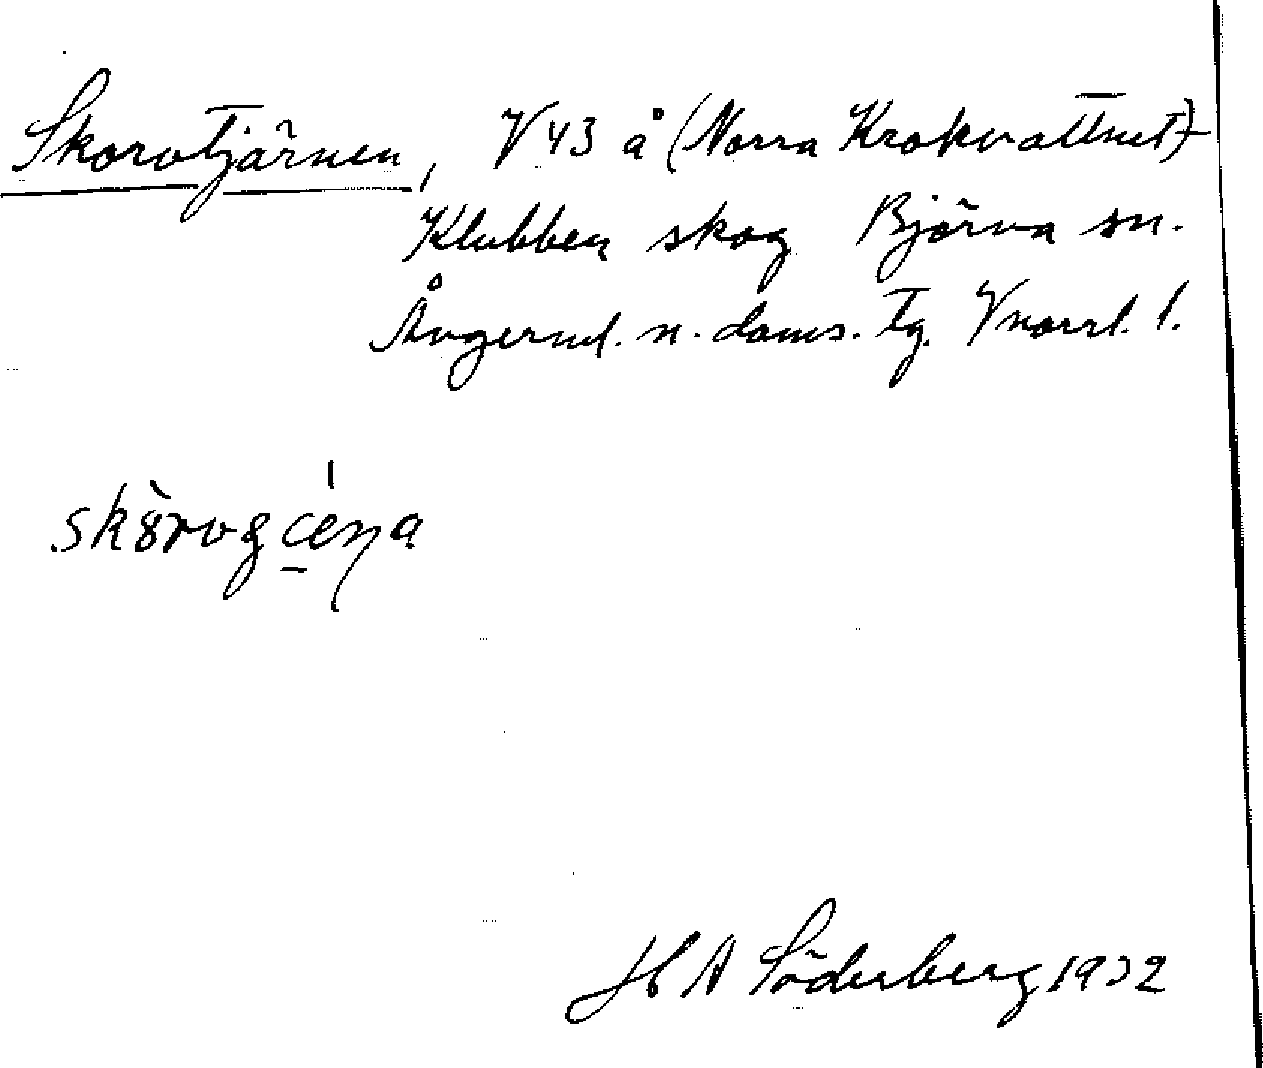 Skorvtjärnen, V 43 å (Norra Krokvattnet)
Klubben skog Björna sn.
Ångerml. n. doms. tg. Vnorrl. l.
H A Söderberg 1932